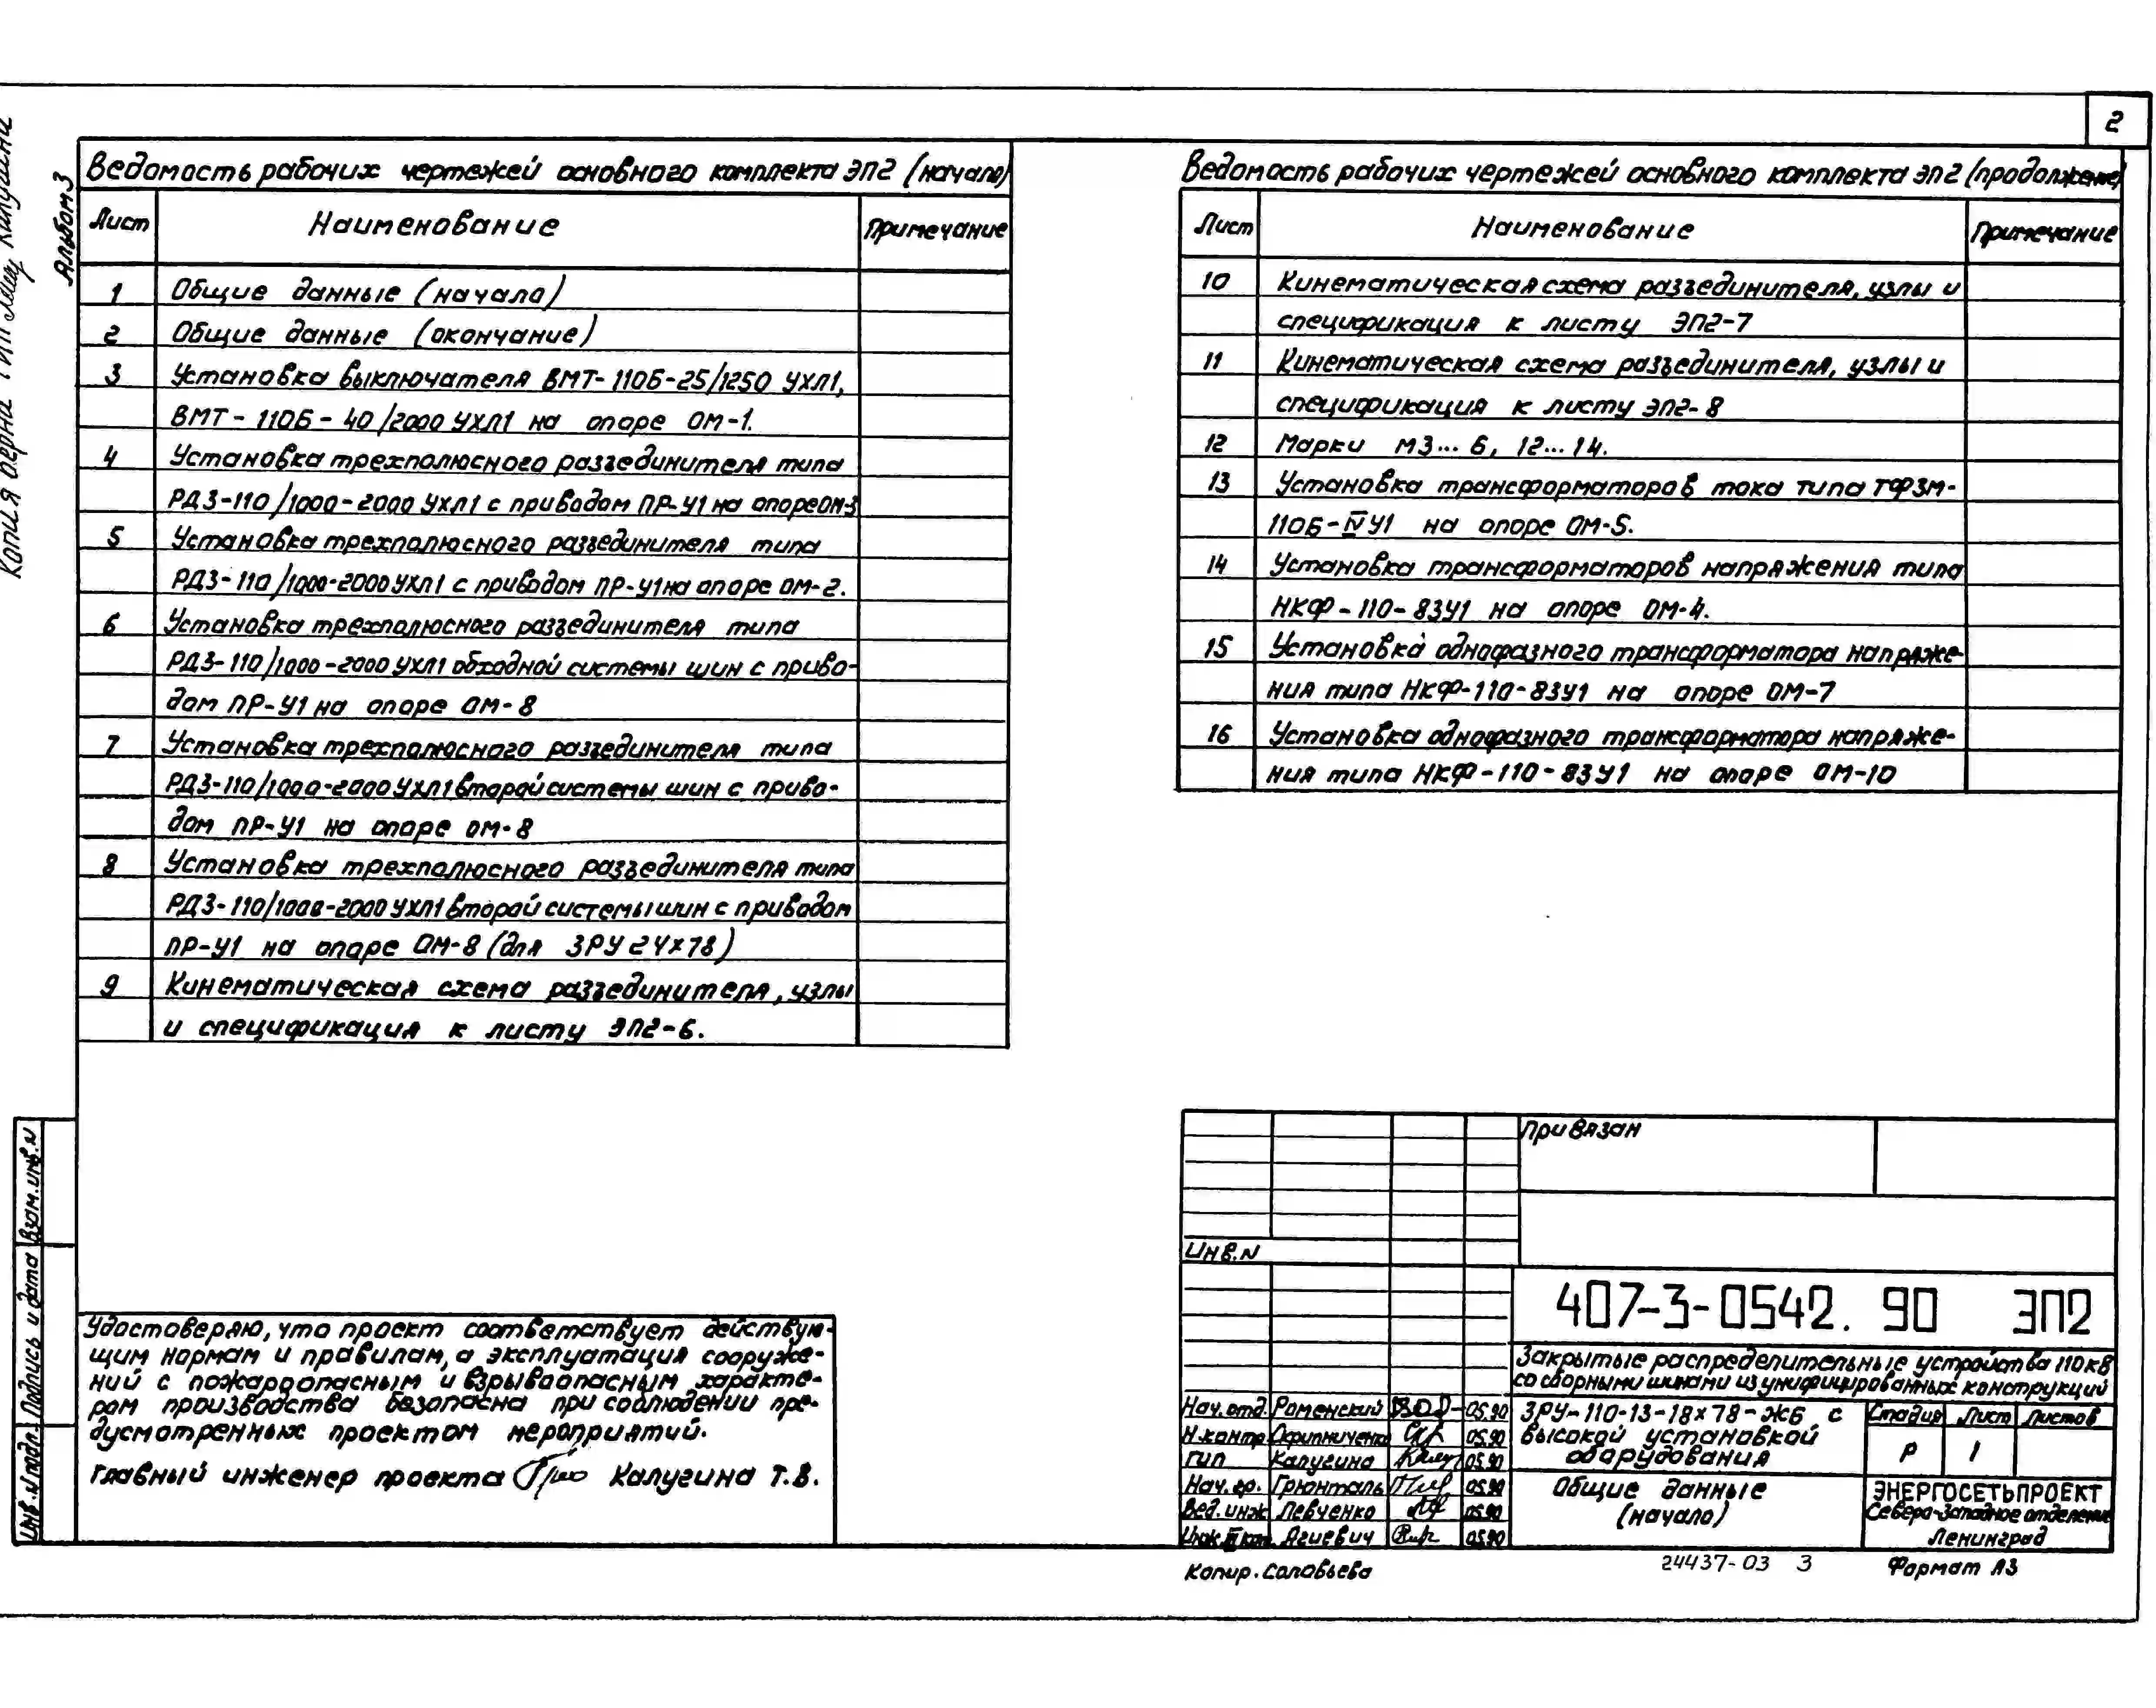 2
Копия верна ГИП Калугина
Альбом 3
Ведомость рабочих чертежей основного комплекта ЭП2 (начало)
Лист Наименование Примечание
1 Общие данные (начало)
2 Общие данные (окончание)
3 Установка выключателя ВМТ-110Б-25/1250 УХЛ1,
ВМТ-110Б-40/2000 УХЛ1 на опоре ОМ-1.
4 Установка трехполюсного разъединителя типа
РДЗ-110/1000-2000 УХЛ1 с приводом ПР-У1 на опоре ОМ-3
5 Установка трехполюсного разъединителя типа
РДЗ-110/1000-2000 УХЛ1 с приводом ПР-У1 на опоре ОМ-2.
6 Установка трехполюсного разъединителя типа
РДЗ-110/1000-2000 УХЛ1 обходной системы шин с приво-
дом ПР-У1 на опоре ОМ-8
7 Установка трехполюсного разъединителя типа
РДЗ-110/1000-2000 УХЛ1 второй системы шин с приво-
дом ПР-У1 на опоре ОМ-8
8 Установка трехполюсного разъединителя типа
РДЗ-110/1000-2000 УХЛ1 второй системы шин с приводом
ПР-У1 на опоре ОМ-8 (для ЗРУ 24×78)
9 Кинематическая схема разъединителя, узлы
и спецификация к листу ЭП2-6.
Ведомость рабочих чертежей основного комплекта ЭП2 (продолжение)
Лист Наименование Примечание
10 Кинематическая схема разъединителя, узлы и
спецификация к листу ЭП2-7
11 Кинематическая схема разъединителя, узлы и
спецификация к листу ЭП2-8
12 Марки М3... 6, 12... 14.
13 Установка трансформаторов тока типа ТФЗМ-
110Б-IVУ1 на опоре ОМ-5.
14 Установка трансформаторов напряжения типа
НКФ-110-83У1 на опоре ОМ-4.
15 Установка однофазного трансформатора напряже-
ния типа НКФ-110-83У1 на опоре ОМ-7
16 Установка однофазного трансформатора напряже-
ния типа НКФ-110-83У1 на опоре ОМ-10
Инв. N подл. Подпись и дата Взам. инв. N
Удостоверяю, что проект соответствует действую-
щим нормам и правилам, а эксплуатация сооруже-
ний с пожароопасным и взрывоопасным характе-
ром производства безопасна при соблюдении пре-
дусмотренных проектом мероприятий.
Главный инженер проекта Калугина Т.В.
Привязан
Инв. N
407-3-0542. 90 ЭП2
Закрытые распределительные устройства 110 кВ
со сборными шинами из унифицированных конструкций
Нач. отд. Роменский 05.90
Н.контр. Скрипниченко 05.90
ГИП Калугина 05.90
Нач. гр. Грюнталь 05.90
Вед. инж Левченко 05.90
Инж. III кат. Агиевич 05.90
ЗРУ-110-13-18×78-ЖБ с
высокой установкой
оборудования
Стадия Лист Листов
Р 1
Общие данные
(начало)
ЭНЕРГОСЕТЬПРОЕКТ
Северо-Западное отделение
Ленинград
Копир. Соловьева
24437-03 3
Формат А3